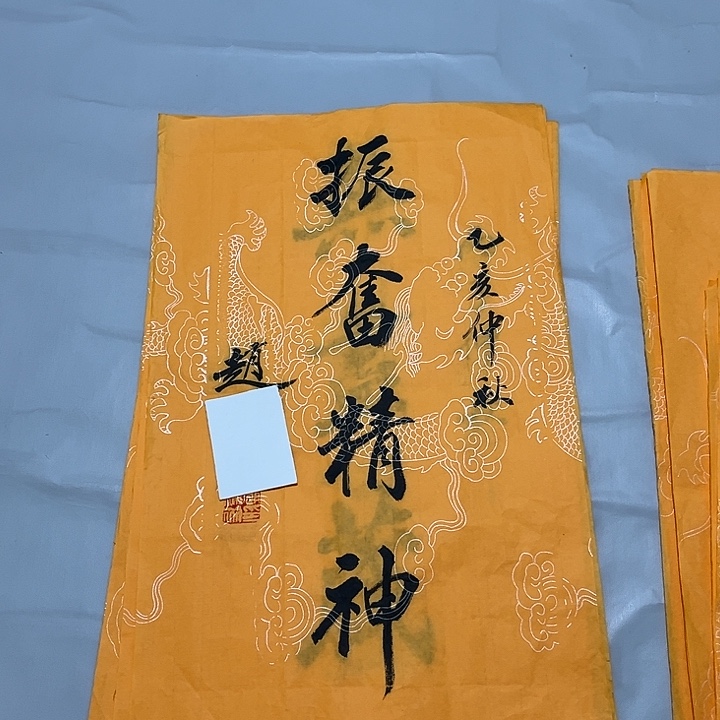 乙亥仲秋
振奮精神
趙